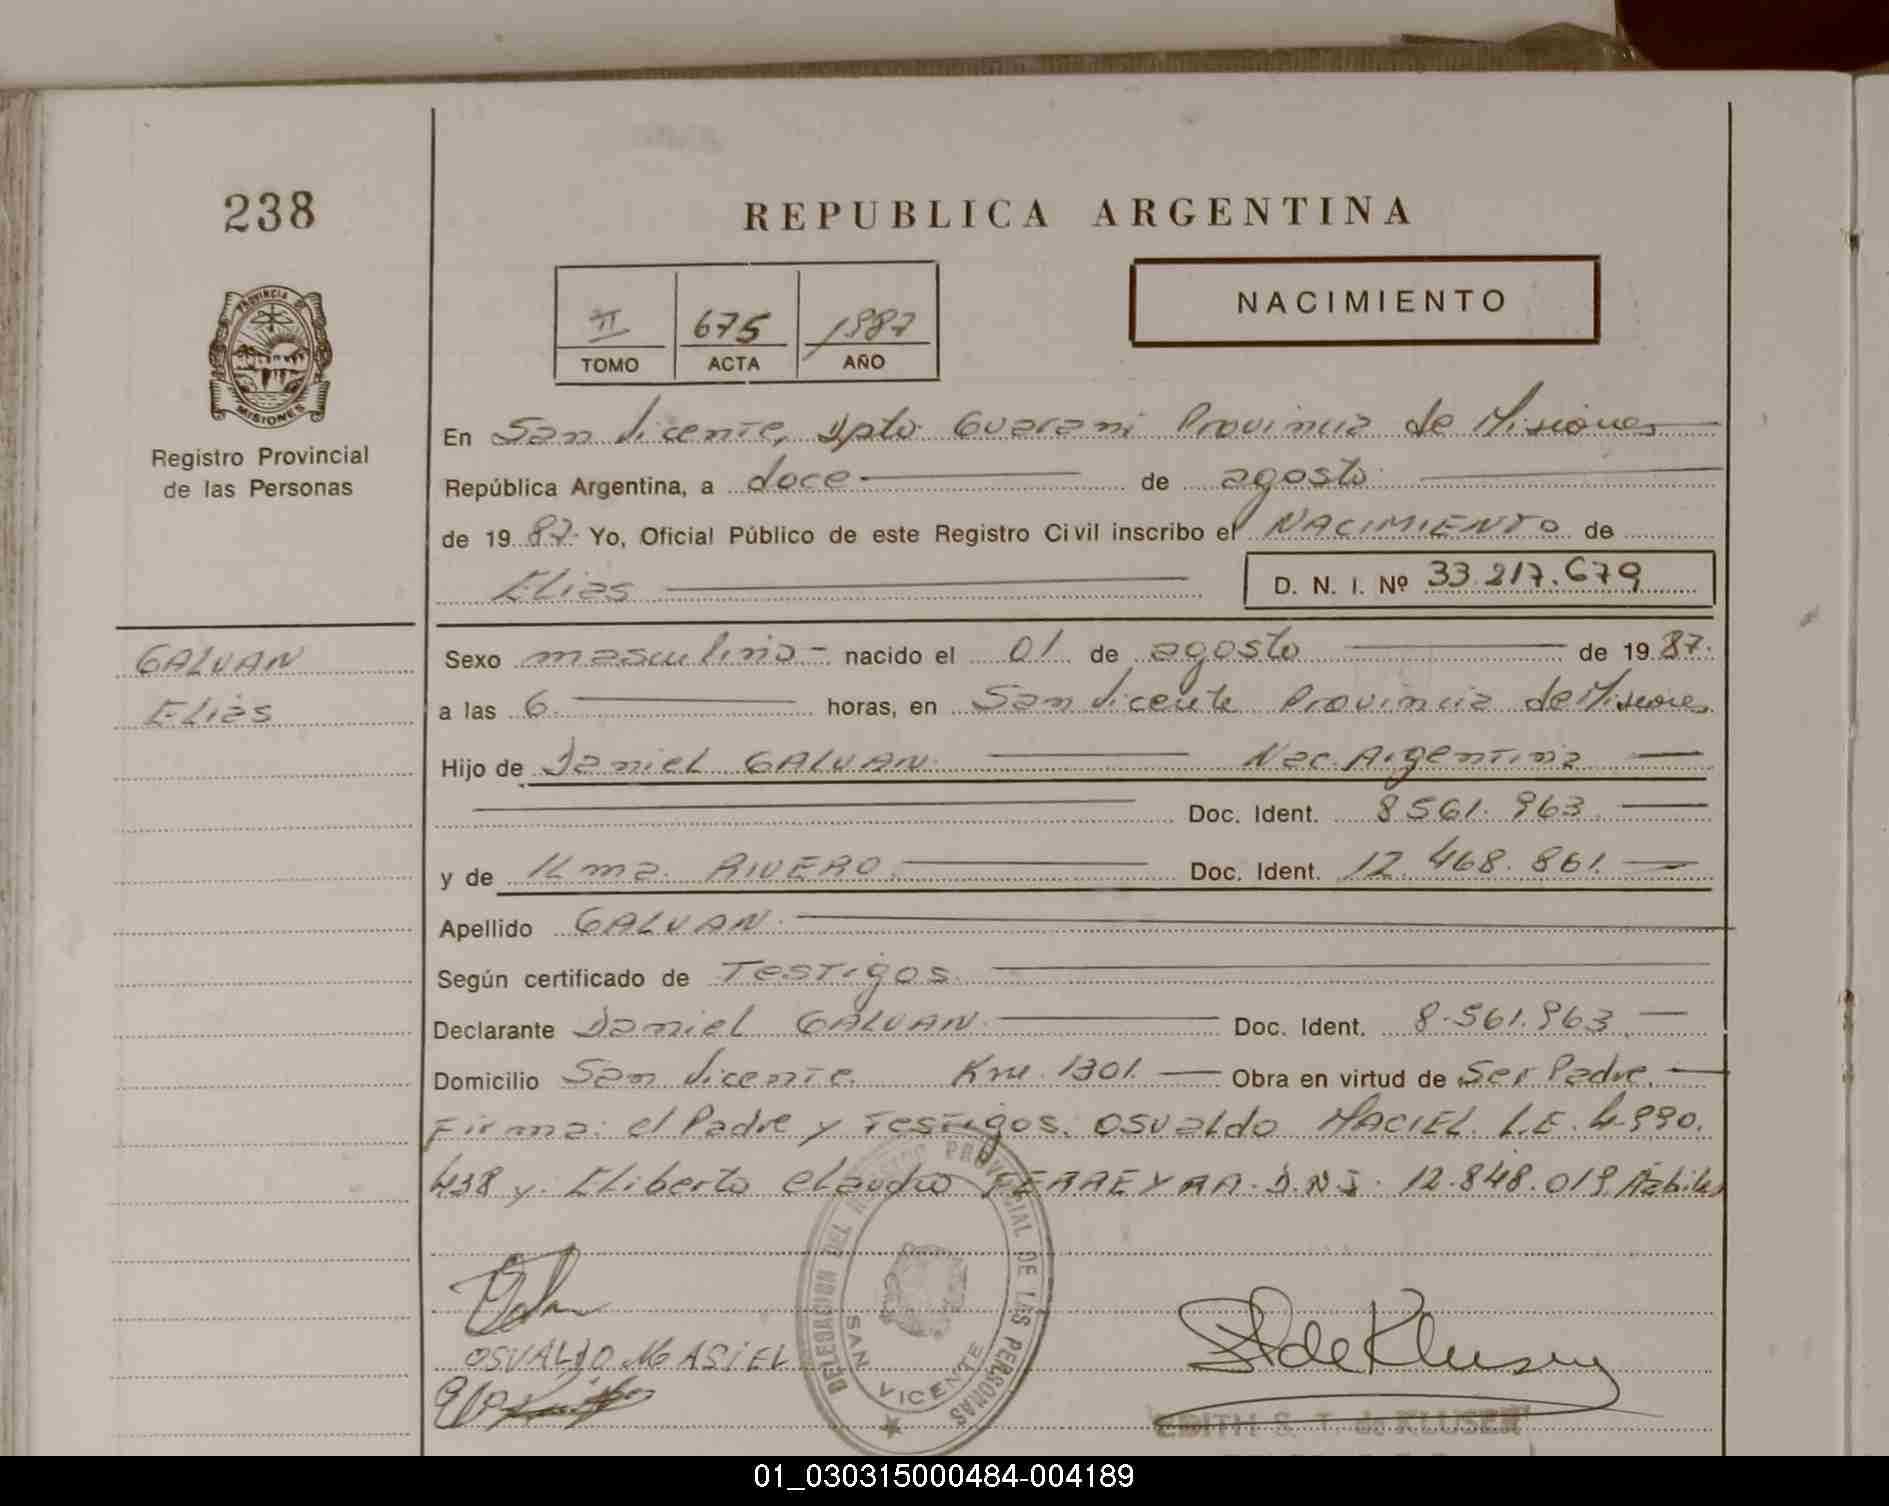 238
REPUBLICA ARGENTINA
II 675 1987
TOMO ACTA AÑO
NACIMIENTO
PROVINCIA DE
MISIONES
Registro Provincial
de las Personas
En San Vicente, Dpto Guarani Provincia de Misiones
República Argentina, a doce de agosto
de 19 87. Yo, Oficial Público de este Registro Civil inscribo el NACIMIENTO de
Elias D. N. I. Nº 33.217.679
GALVAN
Elias
Sexo masculino - nacido el 01 de agosto de 19 87.
a las 6. horas, en San Vicente Provincia de Misiones
Hijo de Daniel GALVAN Nac. Argentina
Doc. Ident. 8561.963
y de Ilma. RIVERO Doc. Ident. 12.468.861.
Apellido GALVAN.
Según certificado de Testigos.
Declarante Daniel GALVAN. Doc. Ident. 8.561.963.
Domicilio San Vicente. Km. 1301. Obra en virtud de Ser Padre.
Firma: el Padre y Testigos. Osvaldo MACIEL. L.E. 4.990.
438 y. Eliberto Claudio FERREYRA. D.N.I. 12.848.019. Habiles
OSVALDO MASIEL
DELEGACION DEL REGISTRO PROVINCIAL DE LAS PERSONAS
SAN VICENTE
EDITH S. T. de KLUSEN
01_030315000484-004189